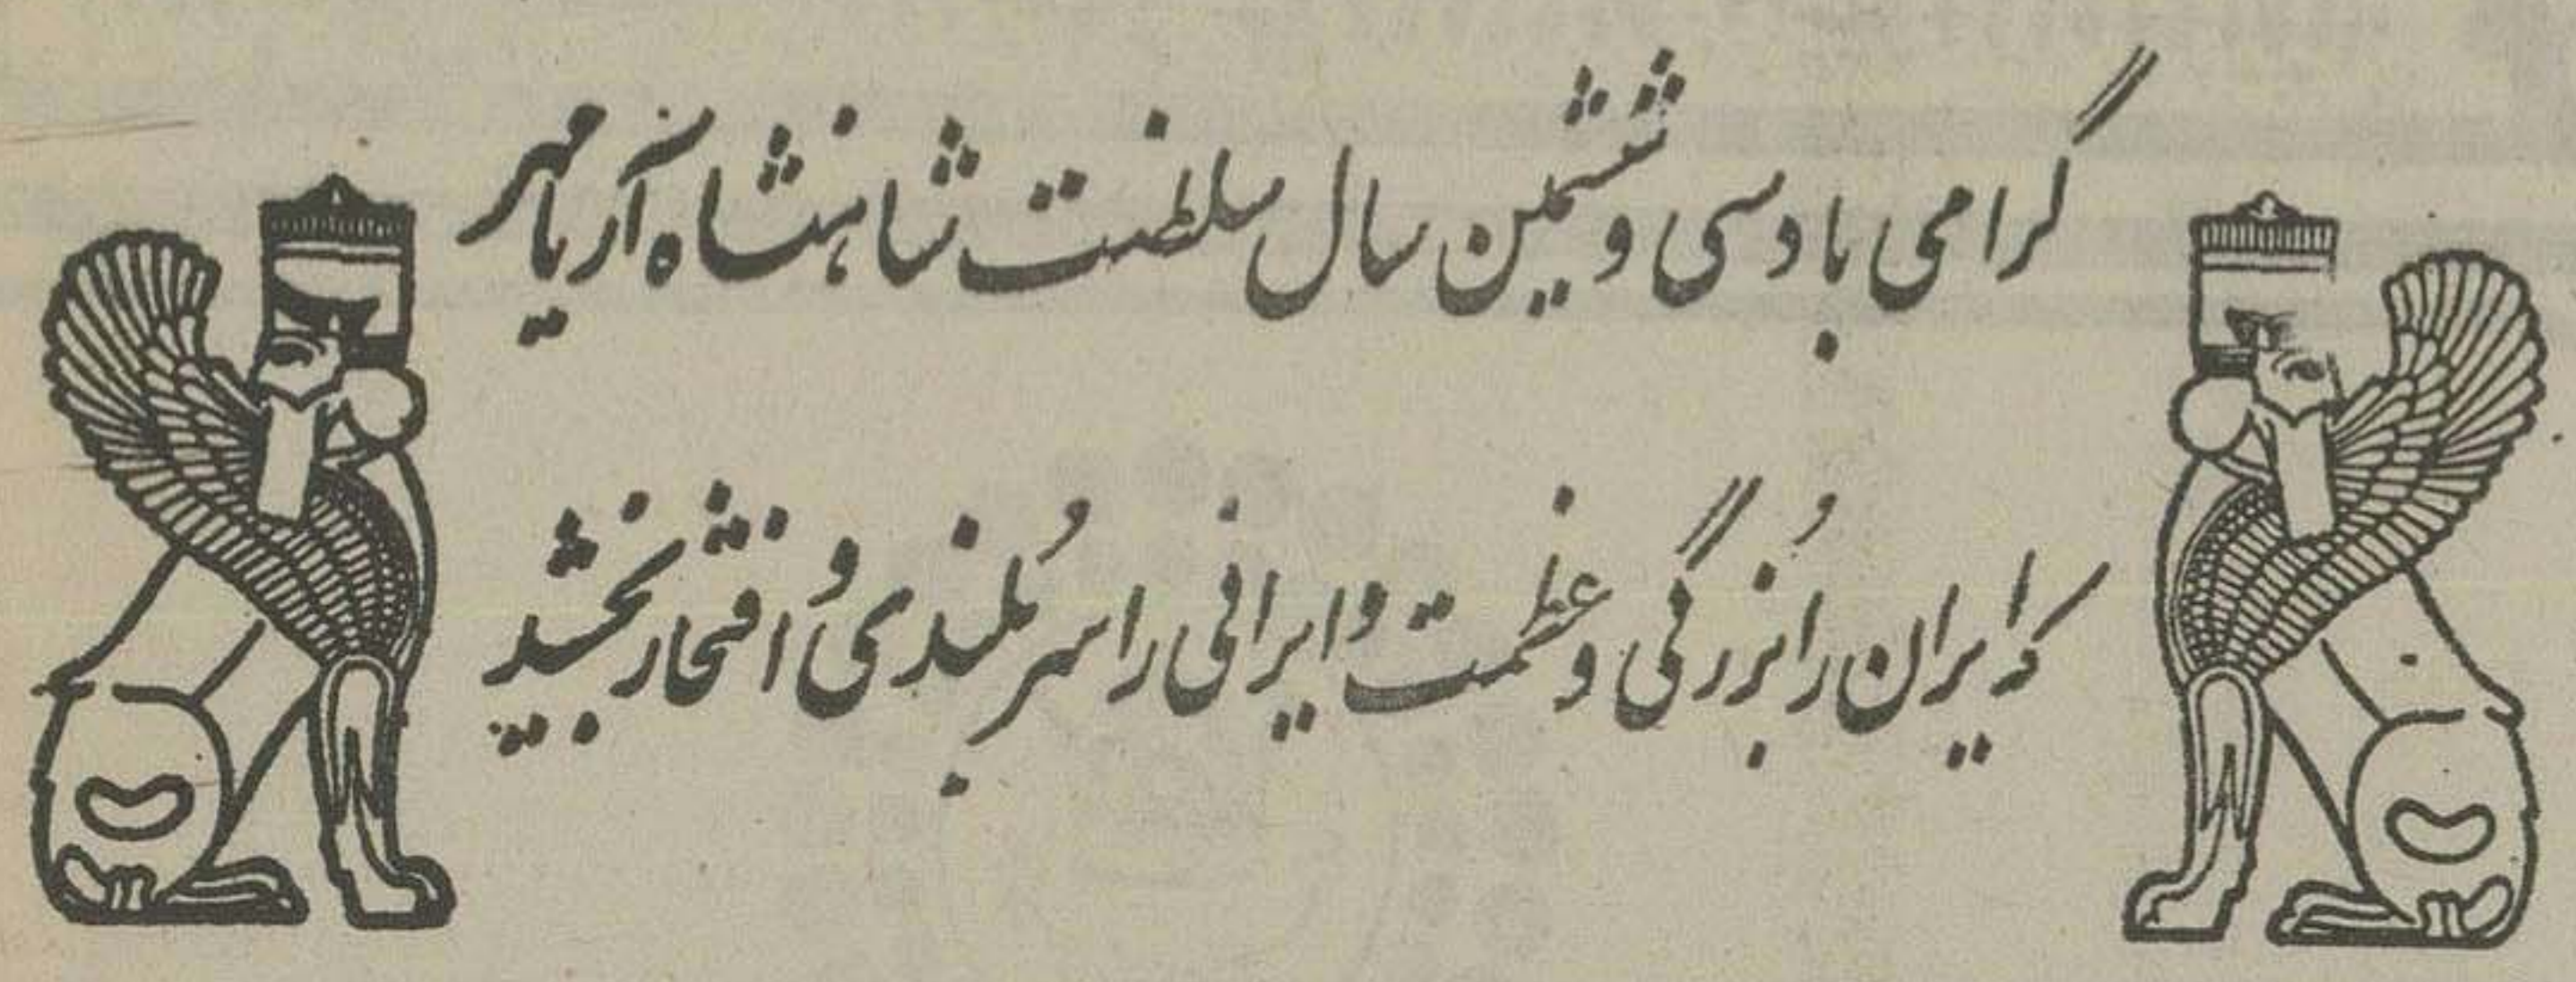 گرامی باد سی و ششمین سال سلطنت شاهنشاه آریامهر
که ایران را بُزرگی و عظمت و ایرانی را سربُلندی وُ افتخار بخشید